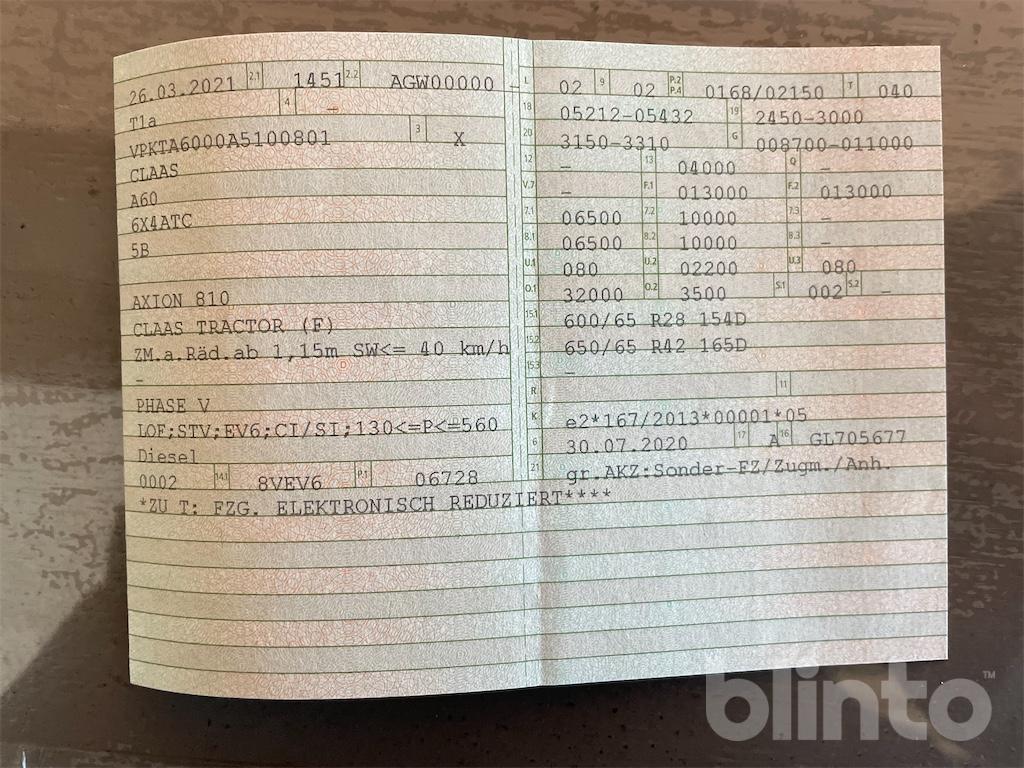 26.03.2021 2.1 1451 2.2 AGW00000 -
4 -
T1a
VPKTA6000A5100801 3 X
CLAAS
A60
6X4ATC
5B
AXION 810
CLAAS TRACTOR (F)
ZM.a.Räd.ab 1,15m SW<= 40 km/h
-
PHASE V
LOF;STV;EV6;CI/SI;130<=P<=560
Diesel
0002 14.1 8VEV6 P.1 06728
*ZU T: FZG. ELEKTRONISCH REDUZIERT****
L 02 9 02 P.2 P.4 0168/02150 T 040
18 05212-05432 19 2450-3000
20 3150-3310 G 008700-011000
12 - 13 04000 Q -
V.7 - F.1 013000 F.2 013000
7.1 06500 7.2 10000 7.3 -
8.1 06500 8.2 10000 8.3 -
U.1 080 U.2 02200 U.3 080
O.1 32000 O.2 3500 S.1 002 S.2 -
15.1 600/65 R28 154D
15.2 650/65 R42 165D
15.3 -
R 11
K e2*167/2013*00001*05
6 30.07.2020 17 A 16 GL705677
21 gr.AKZ:Sonder-FZ/Zugm./Anh.
blinto™